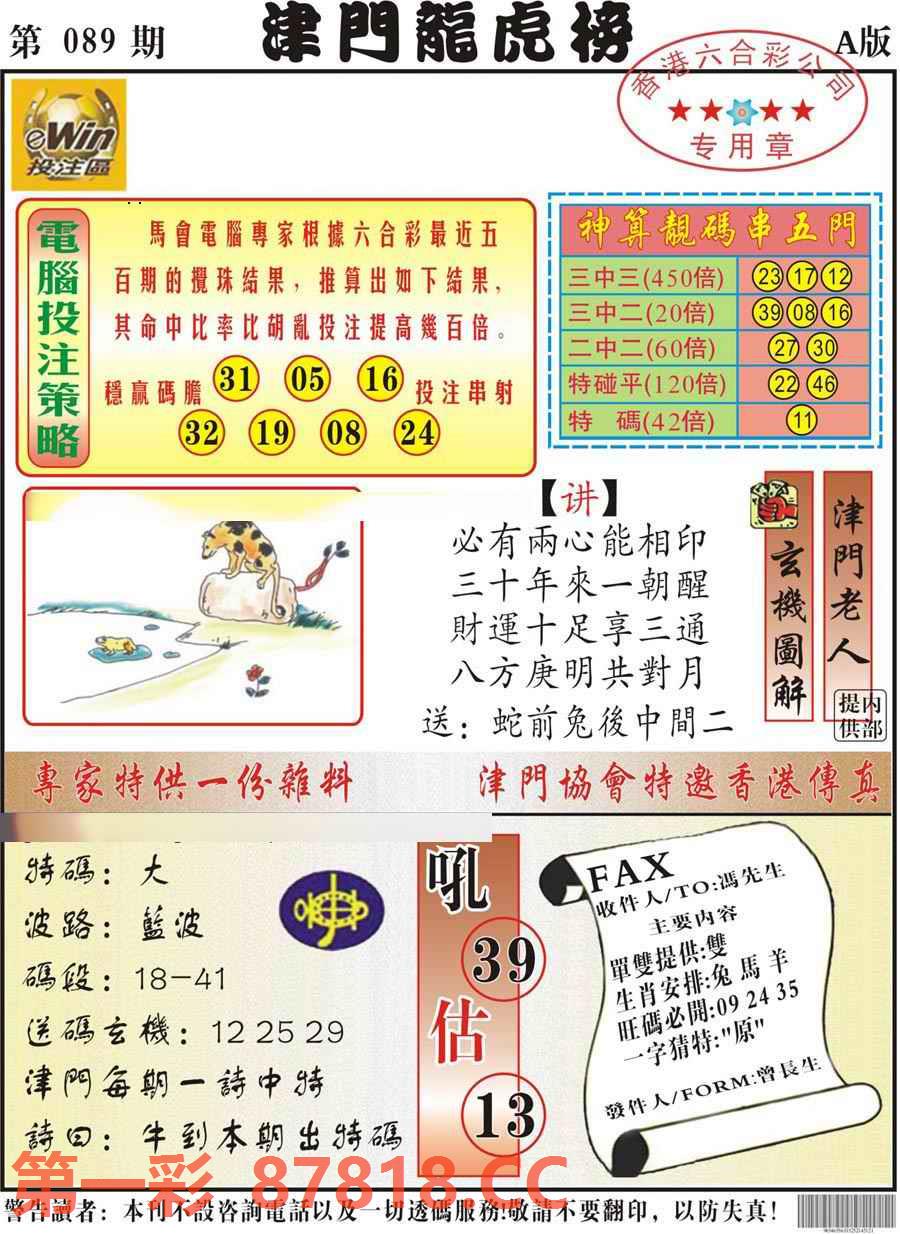 第 089 期
津門龍虎榜
A版
香港六合彩公司
专用章
eWin
投注區
電腦投注策略
馬會電腦專家根據六合彩最近五
百期的攪珠結果，推算出如下結果，
其命中比率比胡亂投注提高幾百倍。
穩贏碼膽 31 05 16 投注串射
32 19 08 24
神算靚碼串五門
三中三(450倍) 23 17 12
三中二(20倍) 39 08 16
二中二(60倍) 27 30
特碰平(120倍) 22 46
特 碼(42倍) 11
【讲】
必有兩心能相印
三十年來一朝醒
財運十足享三通
八方庚明共對月
送：蛇前兔後中間二
玄機圖解
津門老人
内部提供
專家特供一份雜料
津門協會特邀香港傳真
特碼：大
波路：藍波
碼段：18-41
送碼玄機：12 25 29
津門每期一詩中特
詩曰：牛到本期出特碼
吼
39
估
13
FAX
收件人/TO:馮先生
主要内容
單雙提供:雙
生肖安排:兔 馬 羊
旺碼必開:09 24 35
一字猜特:"原"
發件人/FORM:曾長生
第一彩 87818.CC
警告讀者：本刊不設咨詢電話以及一切透碼服務!敬請不要翻印，以防失真!